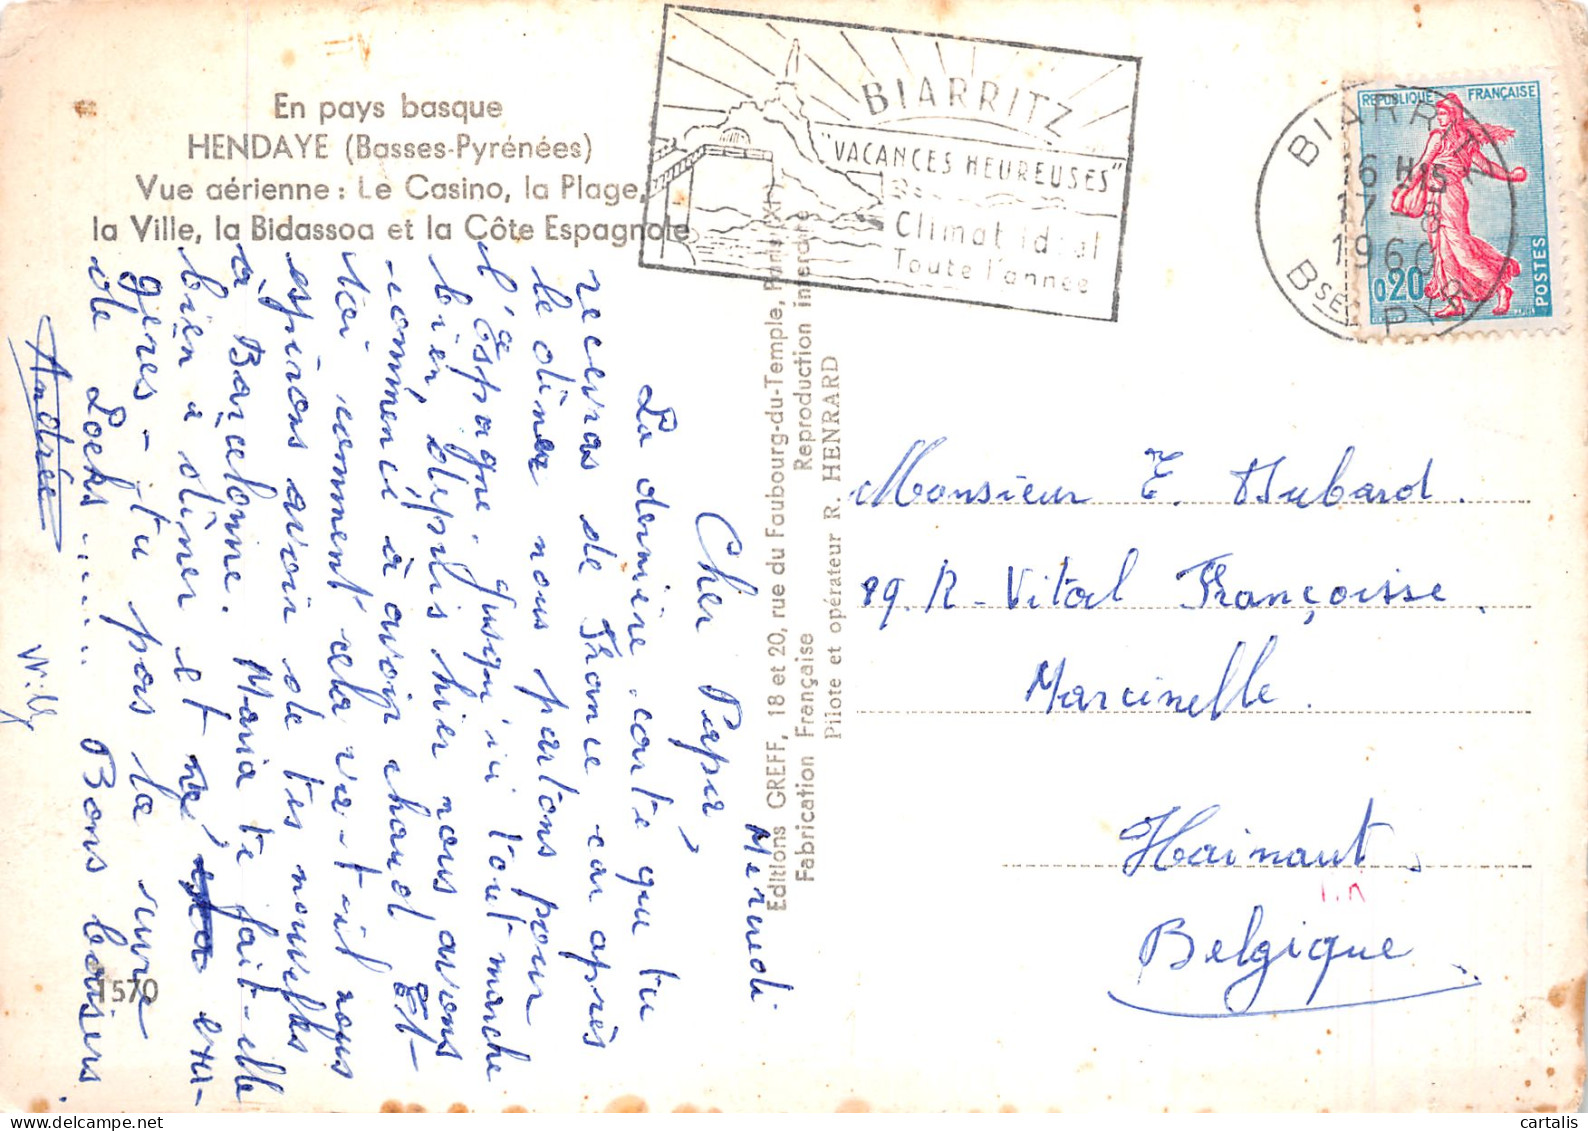 En pays basque
HENDAYE (Basses-Pyrénées)
Vue aérienne : Le Casino, la Plage,
la Ville, la Bidassoa et la Côte Espagnole
BIARRITZ
"VACANCES HEUREUSES"
Climat idéal
Toute l'année
BIARRITZ
16 H 15
17 - 8
1960
BSES PYR.
RÉPUBLIQUE FRANÇAISE
0,20
POSTES
Mercredi
Cher Papa,
La dernière carte que tu
recevras de France car après
le dîner nous partons pour
l'Espagne. Jusqu'ici tout marche
bien, depuis hier nous avons
commencé à avoir chaud Et
toi comment cela va-t-il nous
espérons avoir de tes nouvelles
à Barcelone. Maria te fait-elle
bien à dîner et ne exa-
gères-tu pas la
ole Looks ...... Bons baisers.
Andrée
Willy
1570
Editions GREFF, 18 et 20, rue du Faubourg-du-Temple, Paris (XIe)
Fabrication Française Reproduction interdite
Pilote et opérateur R. HENRARD
Monsieur E. Dubard.
89. R. Vital Françoisse.
Marcinelle.
Hainaut
Belgique.
cartalis